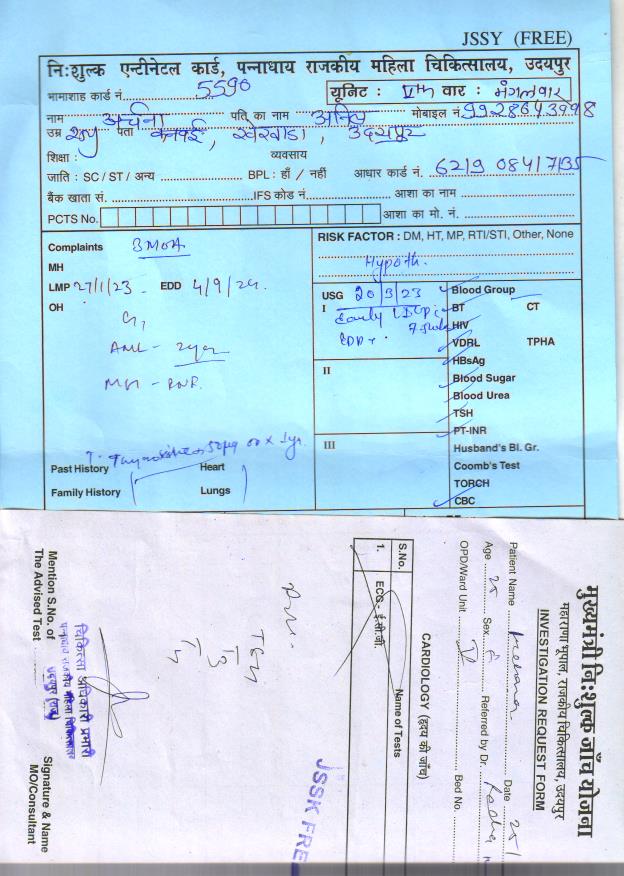 JSSY (FREE)
नि:शुल्क एन्टीनेटल कार्ड, पन्नाधाय राजकीय महिला चिकित्सालय, उदयपुर
भामाशाह कार्ड नं. 5590 यूनिट : Vth वार : मंगलवार
नाम अर्चना पति का नाम मोबाइल नं 9928643998
उम्र 25y पता खेरवाडा, उदयपुर
शिक्षा : व्यवसाय
जाति : SC / ST / अन्य BPL : हाँ / नहीं आधार कार्ड नं. 6219 0841 7135
बैंक खाता सं. IFS कोड नं. आशा का नाम
PCTS No. आशा का मो. नं.
Complaints 3MOA
MH
LMP 27/1/23 EDD 4/9/24
OH
G1
AML - 2year
MH - RNR
Past History Heart
Family History Lungs
RISK FACTOR : DM, HT, MP, RTI/STI, Other, None
Hypoth.
USG 20/3/23
I Early
II
III
Blood Group
BT CT
HIV
VDRL TPHA
HBsAg
Blood Sugar
Blood Urea
TSH
PT-INR
Husband's Bl. Gr.
Coomb's Test
TORCH
CBC
मुख्यमंत्री नि:शुल्क जाँच योजना
महाराणा भूपाल, राजकीय चिकित्सालय, उदयपुर
INVESTIGATION REQUEST FORM
Patient Name Date 25/
Age 25 Sex F Referred by Dr. Radha
OPD/Ward Unit V Bed No.
CARDIOLOGY (हृदय की जाँच)
S.No. Name of Tests
1. ECG - ई.सी.जी.
JSSK FRE
TSH
T3
T4
चिकित्सा अधिकारी प्रभारी
पन्नाधाय राजकीय महिला चिकित्सालय
उदयपुर (राज.)
Mention S.No. of
The Advised Test
Signature & Name
MO/Consultant